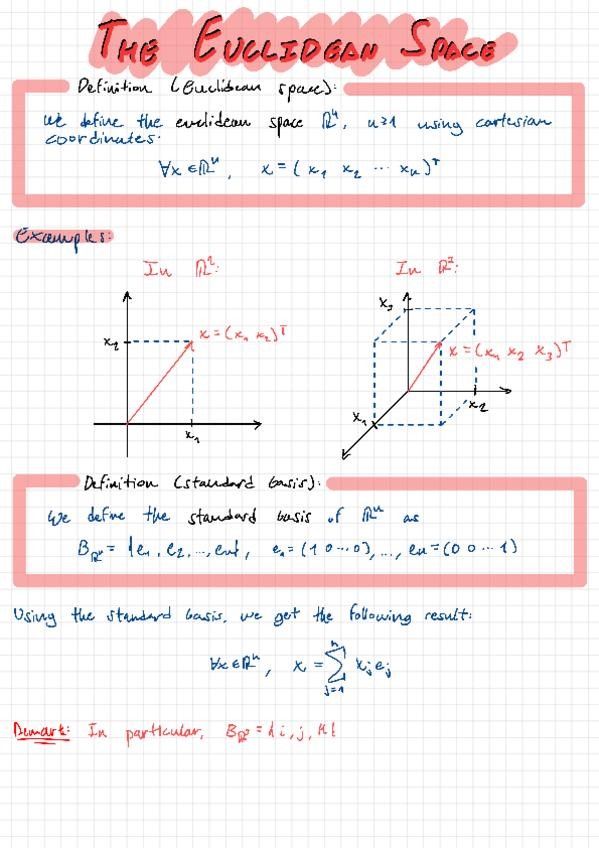 THE EUCLIDEAN SPACE
Definition (Euclidean space):
We define the euclidean space ℝⁿ, n≥1 using cartesian
coordinates:
∀x∈ℝⁿ, x = (x₁ x₂ ⋯ xₙ)ᵀ
Examples:
In ℝ²:
In ℝ³:
x₃
x₂
x = (x₁ x₂)ᵀ
x = (x₁ x₂ x₃)ᵀ
x₁
x₁
x₂
Definition (standard basis):
We define the standard basis of ℝⁿ as
B_ℝⁿ = {e₁, e₂, ..., eₙ}, e₁ = (1 0 ⋯ 0), ..., eₙ = (0 0 ⋯ 1)
Using the standard basis, we get the following result:
∀x∈ℝⁿ, x = ∑ⁿⱼ₌₁ xⱼeⱼ
Remark: In particular, B_ℝ³ = {i, j, k}